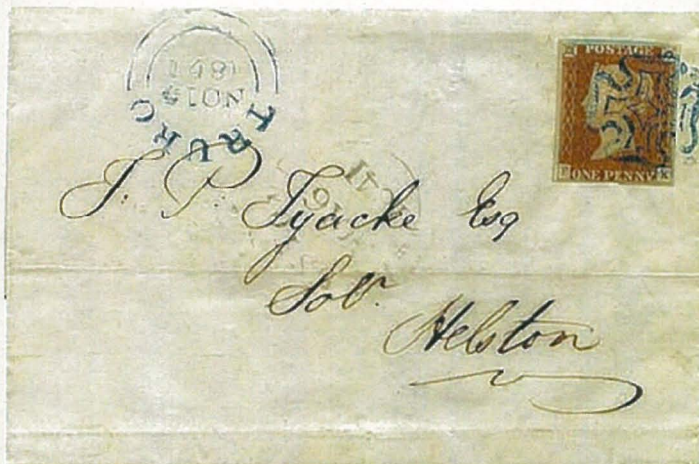 TRURO
NO 19
1841
POSTAGE
ONE PENNY
J. P. Tyacke Esq
Solr.
Helston